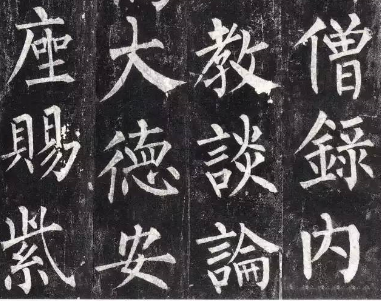 僧錄內
教談論
大德安
座賜紫